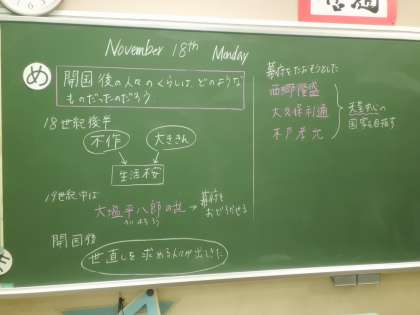 November 18th Monday
め
開国後の人々のくらしは、どのような
ものだったのだろう
18世紀後半
不作
大ききん
生活不安
19世紀中ば
大塩平八郎の乱 → 幕府を
おどろかせる
開国後
世直しを求める人々が出てきた
幕府をたおそうとした
西郷隆盛
大久保利通
木戸孝允
天皇中心の
国家を目指す